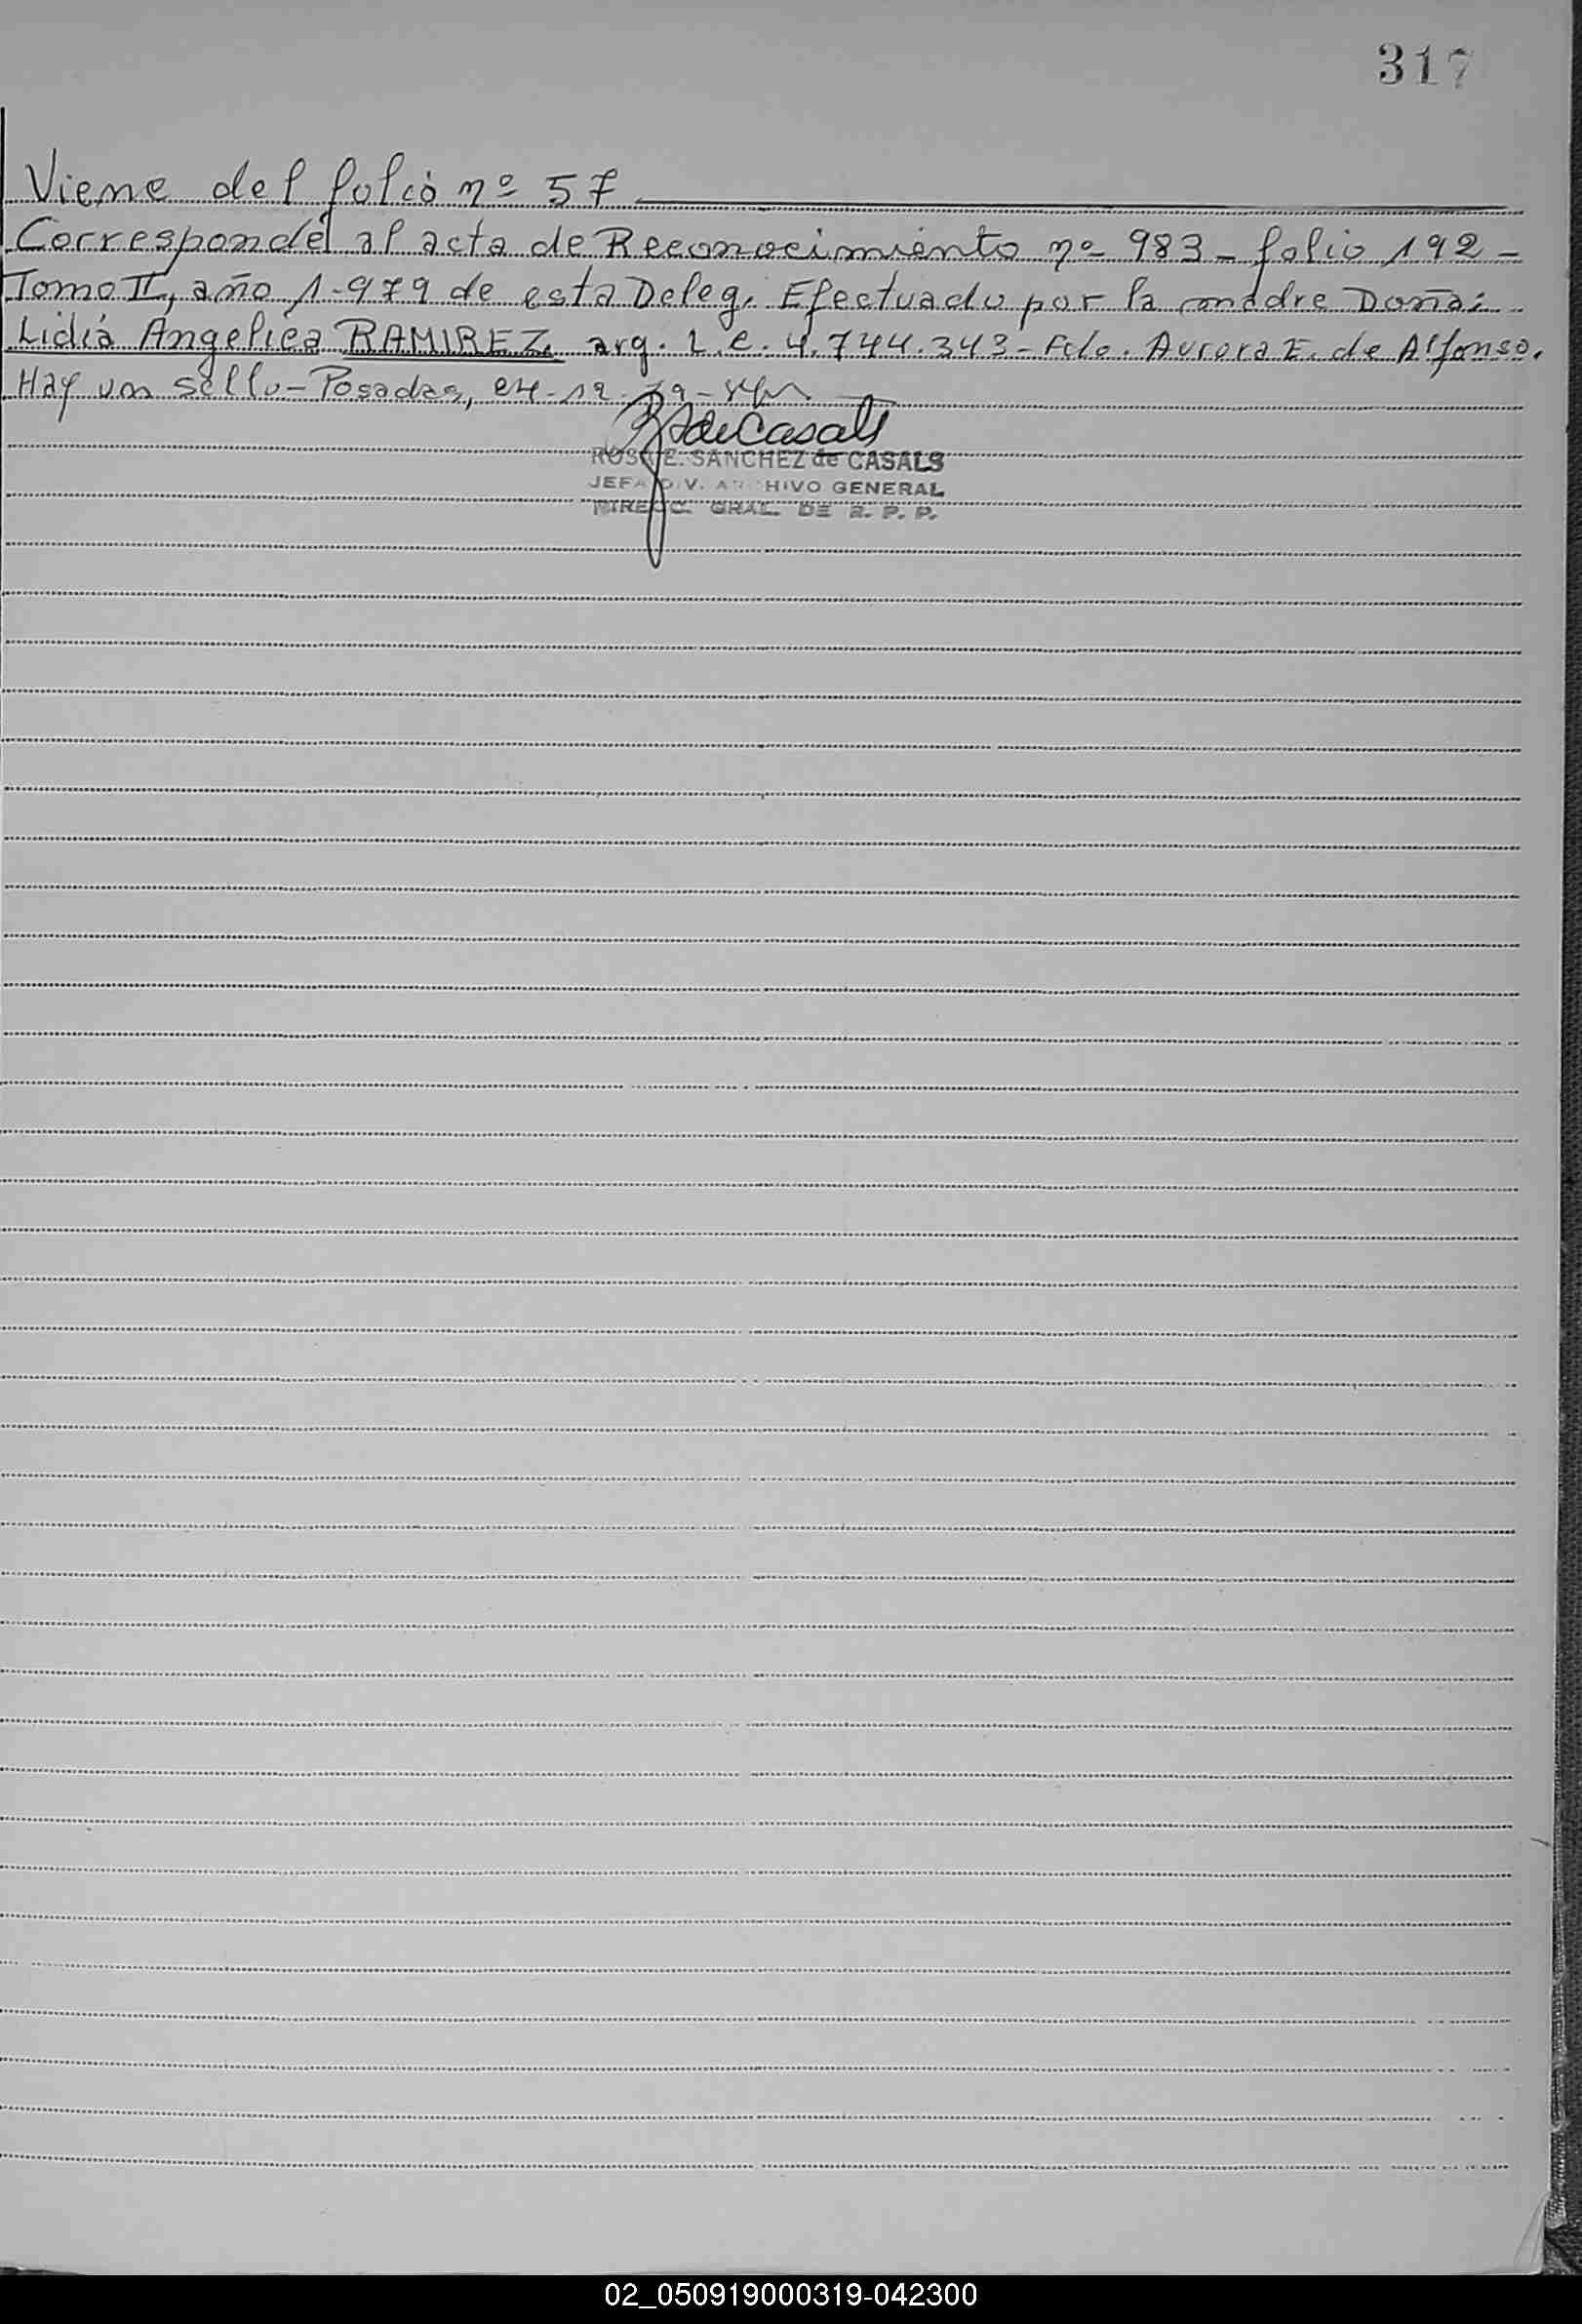 317
Viene del folio nº 57
Corresponde al acta de Reconocimiento nº 983 - folio 192 -
Tomo II, año 1.979 de esta Deleg. Efectuado por la madre Doña:
Lidia Angelica RAMIREZ arg. L.C. 4.744.343 - Fdo. Aurora E. de Alfonso.
Hay un sello - Posadas, 24-12-79 -
R S de Casals
ROSA E. SANCHEZ de CASALS
JEFA DIV. ARCHIVO GENERAL
DIRECC. GRAL. DE R. P. P.
02_050919000319-042300